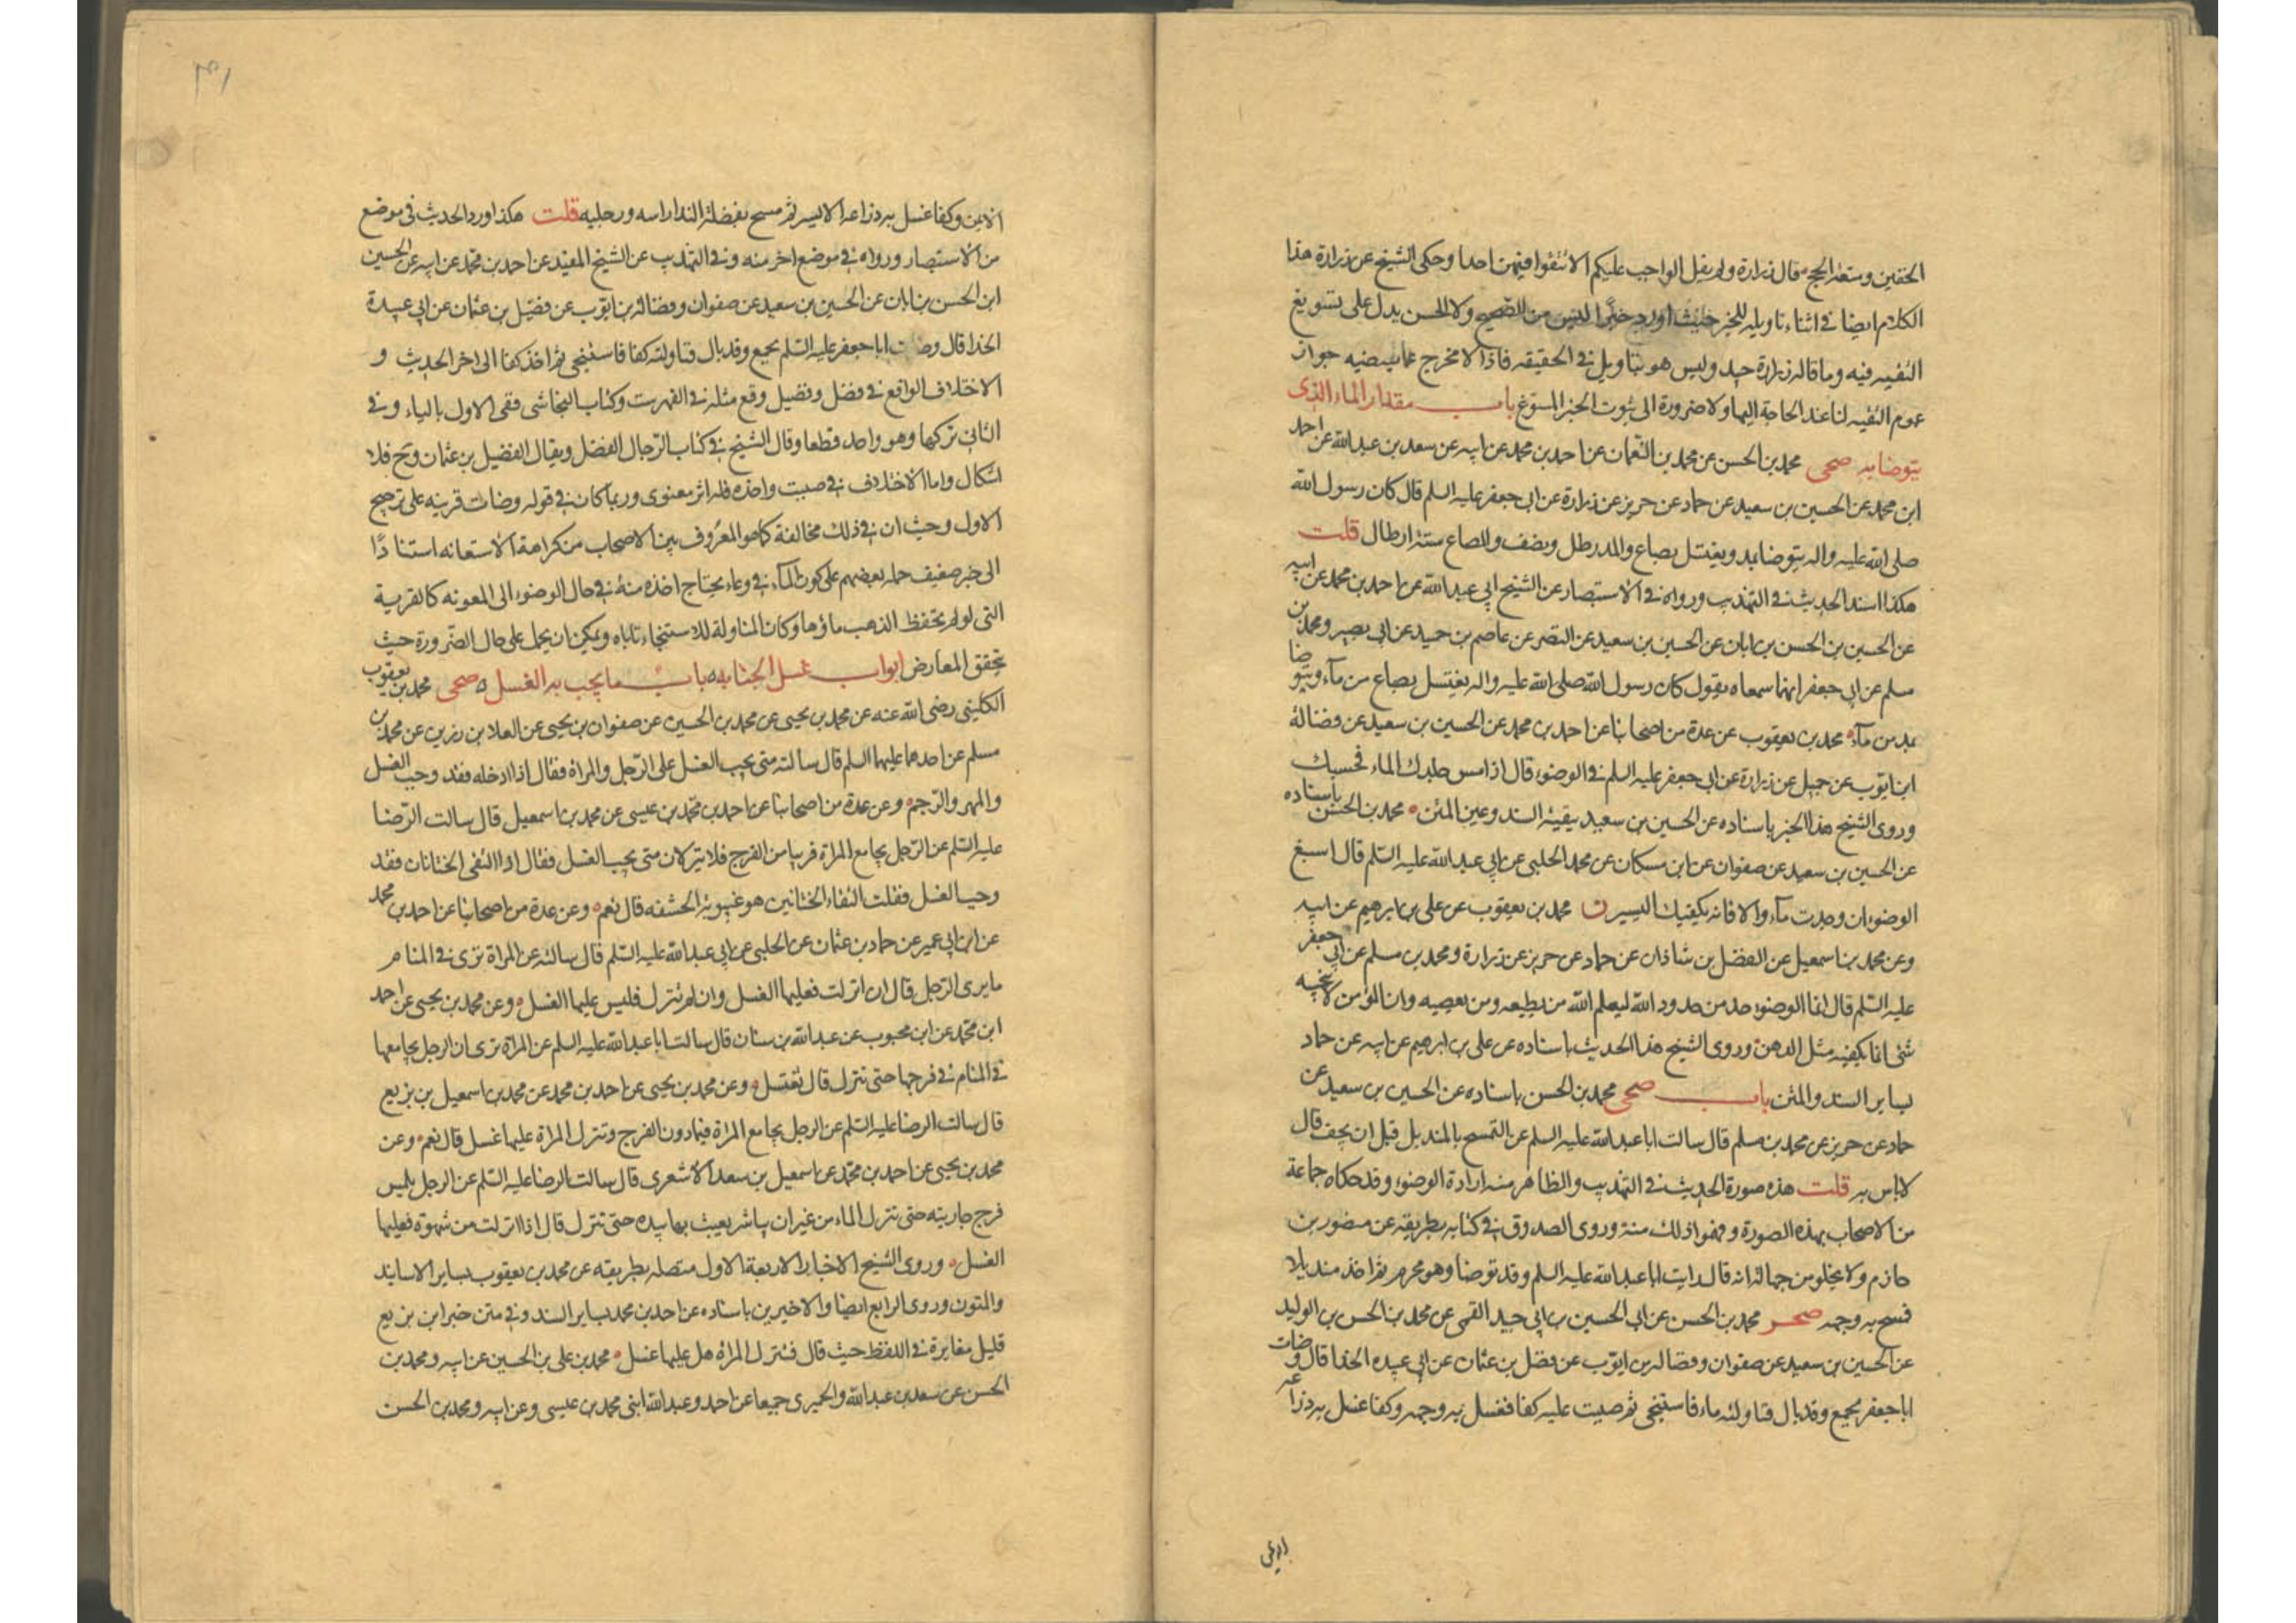 الخفين ومتعة الحج قال زرارة ولم يقل الواجب عليكم الا تتقوا فيهن احدا وحكى الشيخ عن زرارة هذا
الكلام ايضا في اثناء تاويله للخبر حيث اورد خبرا ليس من الصحيح ولا الحسن يدل على تسويغ
التقيه فيه وما قاله زرارة جيد وليس هو بتاويل في الحقيقه فاذا لا مخرج عما يقتضيه جواز
عموم التقيه لنا عند الحاجة اليها ولا ضرورة الى ثبوت الخبر المسوغ باب مقدار الماء الذي
يتوضا به صحى محمد بن الحسن عن محمد بن النعمان عن احمد بن محمد عن ابيه عن سعد بن عبدالله عن احمد
ابن محمد عن الحسين بن سعيد عن حماد عن حريز عن زرارة عن ابي جعفر عليه السلم قال كان رسول الله
صلى الله عليه واله يتوضا بمد ويغتسل بصاع والمد رطل ونصف والصاع ستة ارطال قلت
هكذا اسند الحديث في التهذيب ورواه في الاستبصار عن الشيخ ابي عبدالله عن احمد بن محمد عن ابيه
عن الحسين بن الحسن بن ابان عن الحسين بن سعيد عن النضر عن عاصم بن حميد عن ابي بصير ومحمد بن
مسلم عن ابي جعفر انهما سمعاه يقول كان رسول الله صلى الله عليه واله يغتسل بصاع من مآء ويتوضا
بمد من مآء محمد بن يعقوب عن عدة من اصحابنا عن احمد بن محمد عن الحسين بن سعيد عن فضالة
ابن ايوب عن جميل عن زرارة عن ابي جعفر عليه السلم في الوضوء قال اذا مس جلدك الماء فحسبك
وروى الشيخ هذا الخبر باسناده عن الحسين بن سعيد ببقية السند وعين المتن محمد بن الحسن باسناده
عن الحسين بن سعيد عن صفوان عن ابن مسكان عن محمد الحلبي عن ابي عبدالله عليه السلم قال اسبغ
الوضوء ان وجدت مآء والا فانه يكفيك اليسير ن محمد بن يعقوب عن على بن ابرهيم عن ابيه
وعن محمد بن اسمعيل عن الفضل بن شاذان عن حماد عن حريز عن زرارة ومحمد بن مسلم عن ابي جعفر
عليه السلم قال انما الوضوء حد من حدود الله ليعلم الله من يطيعه ومن يعصيه وان المؤمن لا ينجسه
شئ انما يكفيه مثل الدهن وروى الشيخ هذا الحديث باسناده عن على بن ابرهيم عن ابيه عن حماد
بساير السند والمتن باب صحى محمد بن الحسن باسناده عن الحسين بن سعيد عن
حماد عن حريز عن محمد بن مسلم قال سالت ابا عبدالله عليه السلم عن التمسح بالمنديل قبل ان يجف قال
لا باس به قلت هذه صورة الحديث في التهذيب والظاهر منه ارادة الوضوء وقد حكاه جماعة
من الاصحاب بهذه الصورة وفهموا ذلك منه وروى الصدوق في كتابه بطريقه عن منصور بن
حازم ولا يخلو من جهالة انه قال رايت ابا عبدالله عليه السلم وقد توضا وهو محرم ثم اخذ منديلا
فمسح به وجهه صحر محمد بن الحسن عن ابي الحسين بن ابي جيد القمى عن محمد بن الحسن بن الوليد
عن الحسين بن سعيد عن صفوان وفضاله بن ايوب عن فضل بن عثمان عن ابي عبيده الحذا قال وضات
ابا جعفر بجمع وقد بال فناولته ماء فاستنجى ثم صببت عليه كفا فغسل به وجهه وكفا غسل به ذراعه
الايمن
الايمن وكفا غسل به ذراعه الايسر ثم مسح بفضلة الندا راسه ورجليه قلت هكذا اورد الحديث في موضع
من الاستبصار ورواه في موضع اخر منه وفي التهذيب عن الشيخ المفيد عن احمد بن محمد عن ابيه عن الحسين
ابن الحسن بن ابان عن الحسين بن سعيد عن صفوان وفضالة بن ايوب عن فضيل بن عثمان عن ابي عبيدة
الحذا قال وضات ابا جعفر عليه السلم بجمع وقد بال فناولته كفا فاستنجى ثم اخذ كفا الى اخر الحديث و
الاختلاف الواقع في فضل وفضيل وقع مثله في الفهرست وكتاب النجاشى ففى الاول بالياء وفي
الثاني تركها وهو واحد قطعا وقال الشيخ في كتاب الرجال الفضل ويقال الفضيل بن عثمان وح فلا
اشكال واما الاختلاف في صببت واخذه فله اثر معنوى وربما كان في قوله وضات قرينه على ترجيح
الاول وحيث ان في ذلك مخالفة كما هو المعروف بين الاصحاب من كراهة الاستعانه استنادًا
الى خبر ضعيف حمله بعضهم على كون الماء في وعاء يحتاج اخذه منه في حال الوضوء الى المعونه كالقربة
التى لو لم تحفظ لذهب ماؤها وكان المناولة للاستنجاء تاباه ويمكن ان يحمل على حال الضرورة حيث
يتحقق المعارض ابواب غسل الجنابه باب ما يجب به الغسل صحى محمد بن يعقوب
الكليني رضى الله عنه عن محمد بن يحيى عن محمد بن الحسين عن صفوان بن يحيى عن العلا بن رزين عن محمد بن
مسلم عن احدهما عليهما السلم قال سالته متى يجب الغسل على الرجل والمراة فقال اذا ادخله فقد وجب الغسل
والمهر والرجم وعن عدة من اصحابنا عن احمد بن محمد بن عيسى عن محمد بن اسمعيل قال سالت الرضا
عليه السلم عن الرجل يجامع المراة قريبا من الفرج فلا ينزلان متى يجب الغسل فقال اذا التقى الختانان فقد
وجب الغسل فقلت التقاء الختانين هو غيبوبة الحشفه قال نعم وعن عدة من اصحابنا عن احمد بن محمد
عن ابن ابي عمير عن حماد بن عثمان عن الحلبى عن ابي عبدالله عليه السلم قال سالته عن المراة ترى في المنام
ما يرى الرجل قال ان انزلت فعليها الغسل وان لم تنزل فليس عليها الغسل وعن محمد بن يحيى عن احمد
ابن محمد عن ابن محبوب عن عبدالله بن سنان قال سالت ابا عبدالله عليه السلم عن المراة ترى ان الرجل يجامعها
في المنام في فرجها حتى تنزل قال تغتسل وعن محمد بن يحيى عن احمد بن محمد عن محمد بن اسمعيل بن بزيع
قال سالت الرضا عليه السلم عن الرجل يجامع المراة فيما دون الفرج وتنزل المراة عليها غسل قال نعم وعن
محمد بن يحيى عن احمد بن محمد عن اسمعيل بن سعد الاشعرى قال سالت الرضا عليه السلم عن الرجل يلمس
فرج جاريته حتى تنزل الماء من غير ان يباشر يعبث بها بيده حتى تنزل قال اذا انزلت من شهوة فعليها
الغسل وروى الشيخ الاخبار الاربعة الاول متصله بطريقه عن محمد بن يعقوب بساير الاسانيد
والمتون وروى الرابع ايضا والاخيرين باسناده عن احمد بن محمد بساير السند وفي متن خبر ابن بزيع
قليل مغايرة في اللفظ حيث قال فتنزل المراة هل عليها غسل محمد بن على بن الحسين عن ابيه ومحمد بن
الحسن عن سعد بن عبدالله والحميرى جميعا عن احمد وعبدالله ابنى محمد بن عيسى وعن ابيه ومحمد بن الحسن